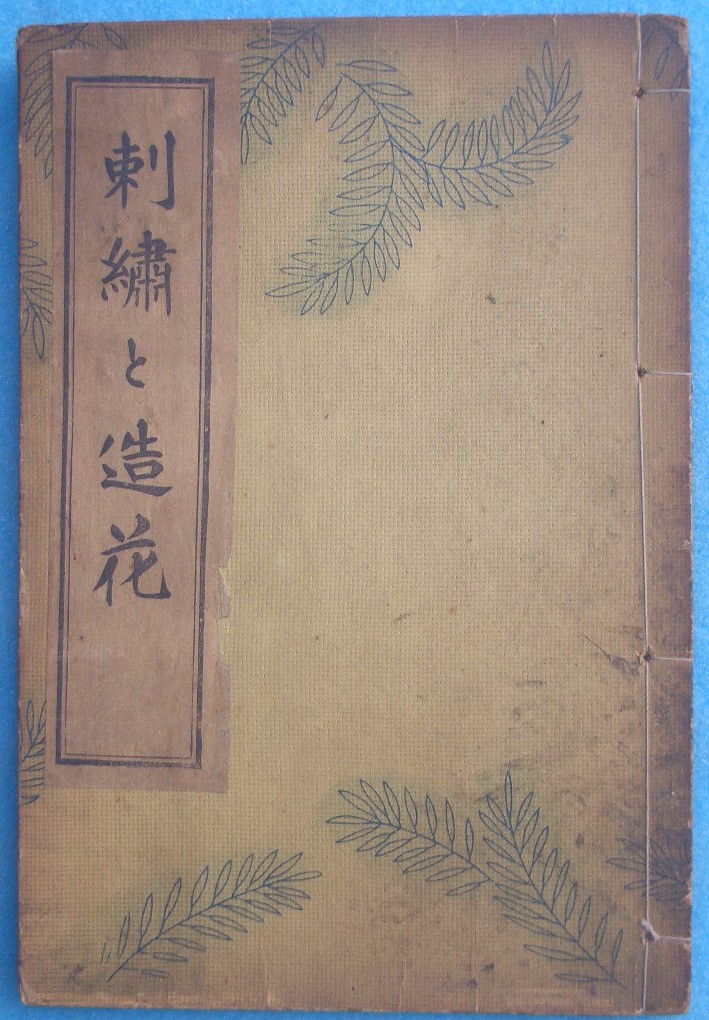 刺繡と造花